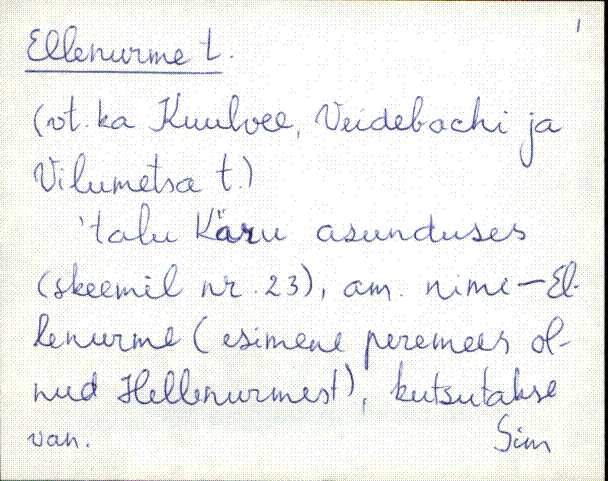 1
Ellenurme t.
(vt. ka Kuulvee, Veidebachi ja
Vilumetsa t.)
'talu Käru asunduses
(skeemil nr. 23), am. nime—El-
lenurme (esimene peremees ol-
nud Hellenurmest), kutsutakse
van. Sim